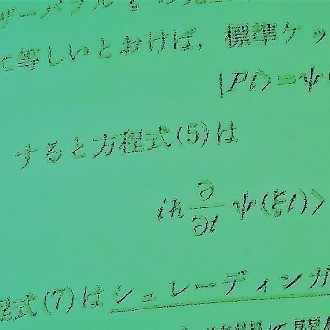 に等しいとおけば, 標準ケッ
|Pt⟩=ψ(
すると方程式(5)は
iħ ∂/∂t ψ(ξt)⟩
程式(7)はシュレーディンガ